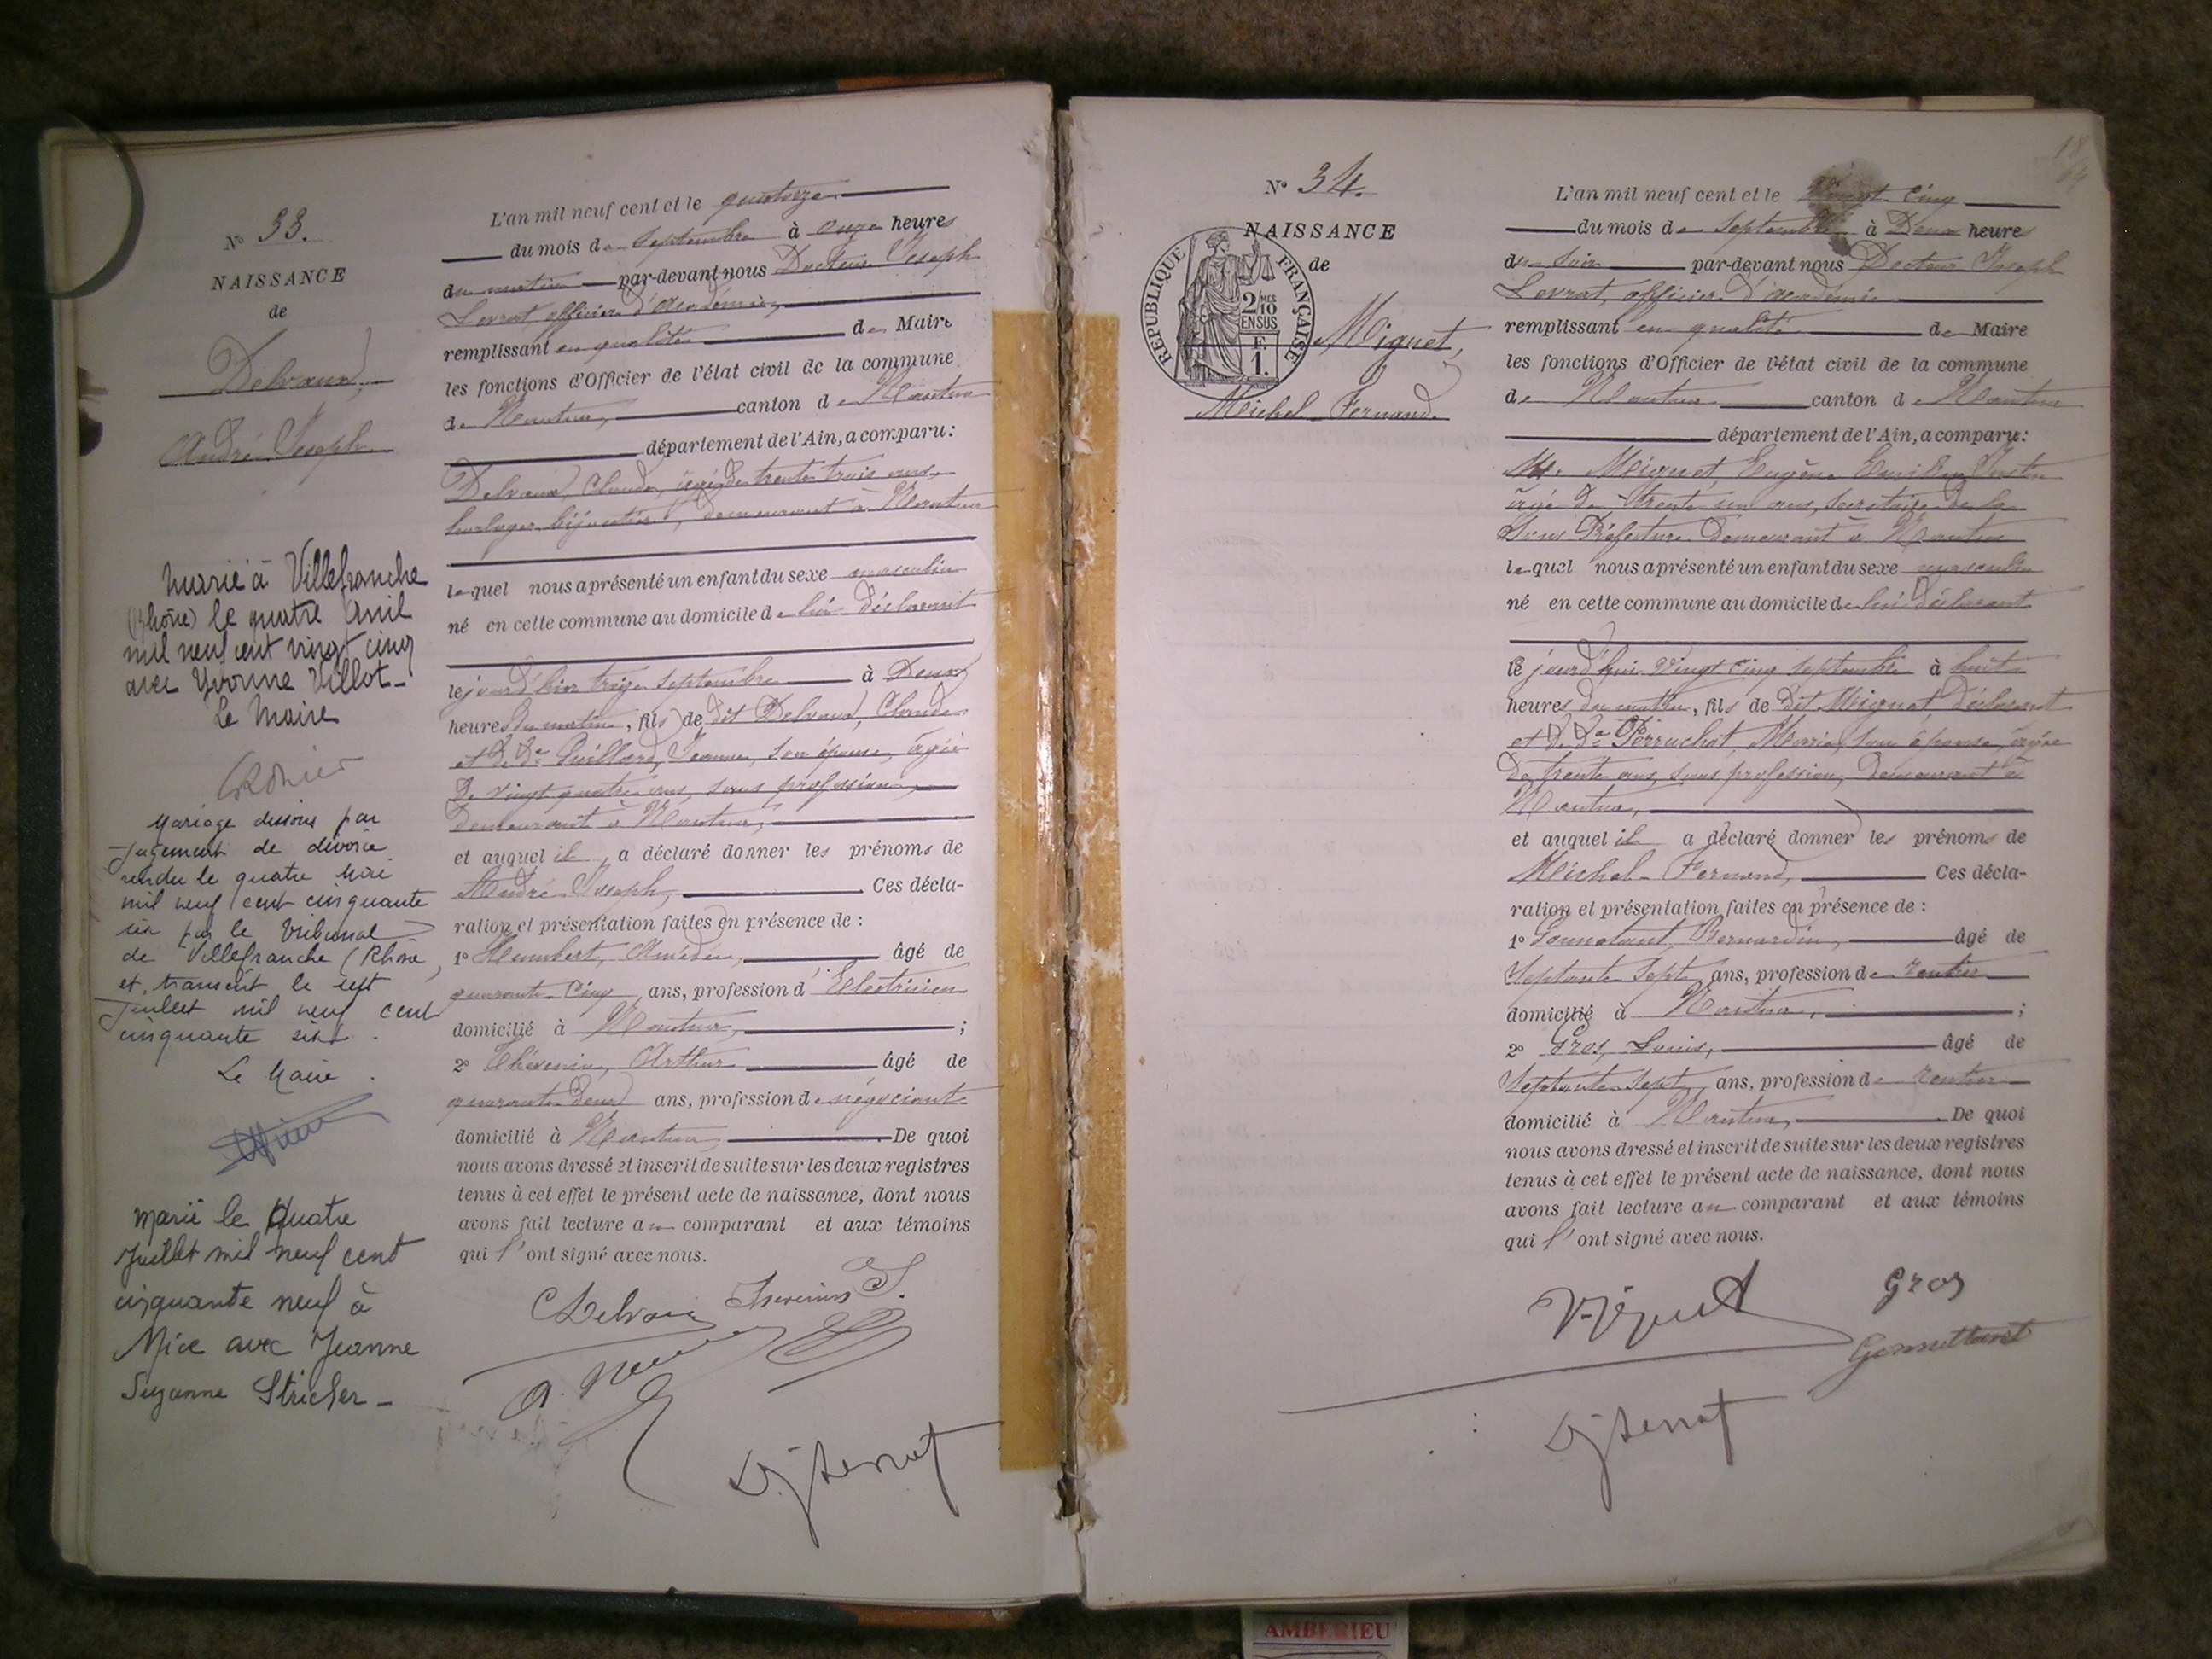 N° 33.
NAISSANCE
de
Delvaux,
André Joseph
Marié à Villefranche
(Rhône) le quatre Avril
mil neuf cent vingt cinq
avec Yvonne Villot_
Le Maire
Mariage dissous par
jugement de divorce
rendu le quatre Mai
mil neuf cent cinquante
six par le Tribunal
de Villefranche (Rhône)
et transcrit le sept
Juillet mil neuf cent
cinquante six.
Le Maire.
Marié le Quatre
Juillet mil neuf cent
cinquante neuf à
Nice avec Jeanne
Suzanne Stricker_
L'an mil neuf cent et le quatorze
du mois de septembre à onze heures
du matin par-devant nous Docteur Joseph
Levrat, officier d'Académie,
remplissant en qualité de Maire
les fonctions d'Officier de l'état civil de la commune
de Nantua, canton de Nantua
département de l'Ain, a comparu:
Delvaux, Claude, âgé de trente trois ans,
horloger bijoutier, demeurant à Nantua
lequel nous a présenté un enfant du sexe masculin
né en cette commune au domicile de lui déclarant
le jour d'hier treize septembre à Deux
heures du matin, fils de dit Delvaux, Claude
et de De Guillard, Jeanne, son épouse, âgée
de vingt quatre ans, sans profession,
demeurant à Nantua,
et auquel il a déclaré donner les prénoms de
André Joseph, Ces décla-
ration et présentation faites en présence de :
1° Humbert, Amédée, âgé de
quarante cinq ans, profession d'Electricien
domicilié à Nantua, ;
2° Thévenin, Arthur âgé de
quarante deux ans, profession de négociant
domicilié à Nantua, De quoi
nous avons dressé et inscrit de suite sur les deux registres
tenus à cet effet le présent acte de naissance, dont nous
avons fait lecture au comparant et aux témoins
qui l'ont signé avec nous.
CDelvaux
N° 34.
NAISSANCE
de
RÉPUBLIQUE FRANÇAISE
2 MES
10
EN SUS
F.
1.
Miguet,
Michel Fernand.
L'an mil neuf cent et le Vingt-cinq
du mois de septembre à Deux heures
du soir par-devant nous Docteur Joseph
Levrat, officier d'académie
remplissant en qualité de Maire
les fonctions d'Officier de l'état civil de la commune
de Nantua canton de Nantua
département de l'Ain, a comparu:
M. Miguet Eugène Emilien Justin
âgé de trente un ans, secrétaire de la
Sous Préfecture demeurant à Nantua
lequel nous a présenté un enfant du sexe masculin
né en cette commune au domicile de lui déclarant
le jourd'hui Vingt cinq septembre à huit
heures du matin, fils de dit Miguet déclarant
et de De Perruchot, Maria, son épouse, âgée
de trente ans, sans profession, demeurant à
Nantua,
et auquel il a déclaré donner les prénoms de
Michel-Fernand, Ces décla-
ration et présentation faites en présence de :
1° Bernardin, âgé de
Septante sept ans, profession de rentier
domicilié à Nantua, ;
2° Gros, Louis, âgé de
Septante sept ans, profession de rentier
domicilié à Nantua, De quoi
nous avons dressé et inscrit de suite sur les deux registres
tenus à cet effet le présent acte de naissance, dont nous
avons fait lecture au comparant et aux témoins
qui l'ont signé avec nous.
Miguet
Gros
AMBERIEU